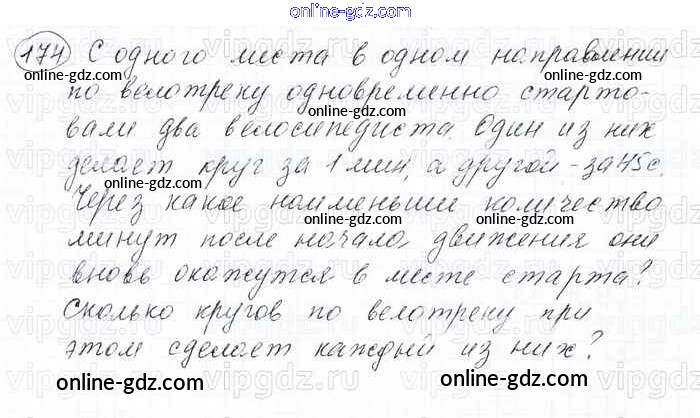 online-gdz.com
174 С одного места в одном направлении
online-gdz.com online-gdz.com
по велотреку одновременно старто-
вали два велосипедиста. Один из них
делает круг за 1 мин, а другой - за 45 с.
online-gdz.com online-gdz.com
Через какое наименьшее количество
online-gdz.com online-gdz.com
минут после начала движения они
вновь окажутся в месте старта?
Сколько кругов по велотреку при
этом сделает каждый из них?
online-gdz.com online-gdz.com